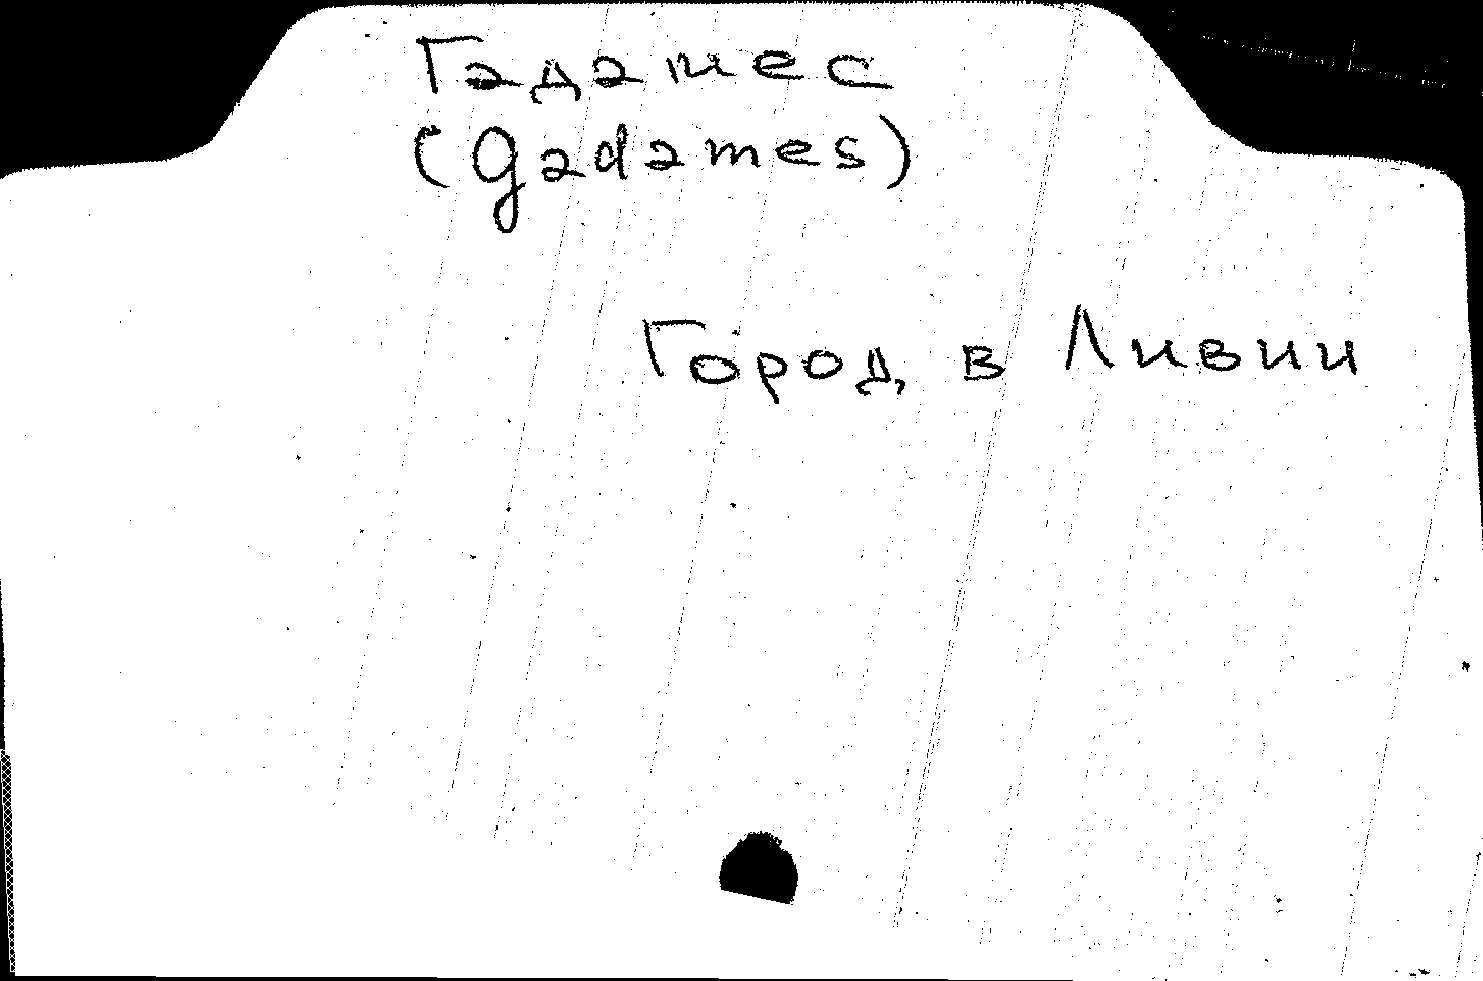 Гадамес
(Gadames)
Город в Ливии